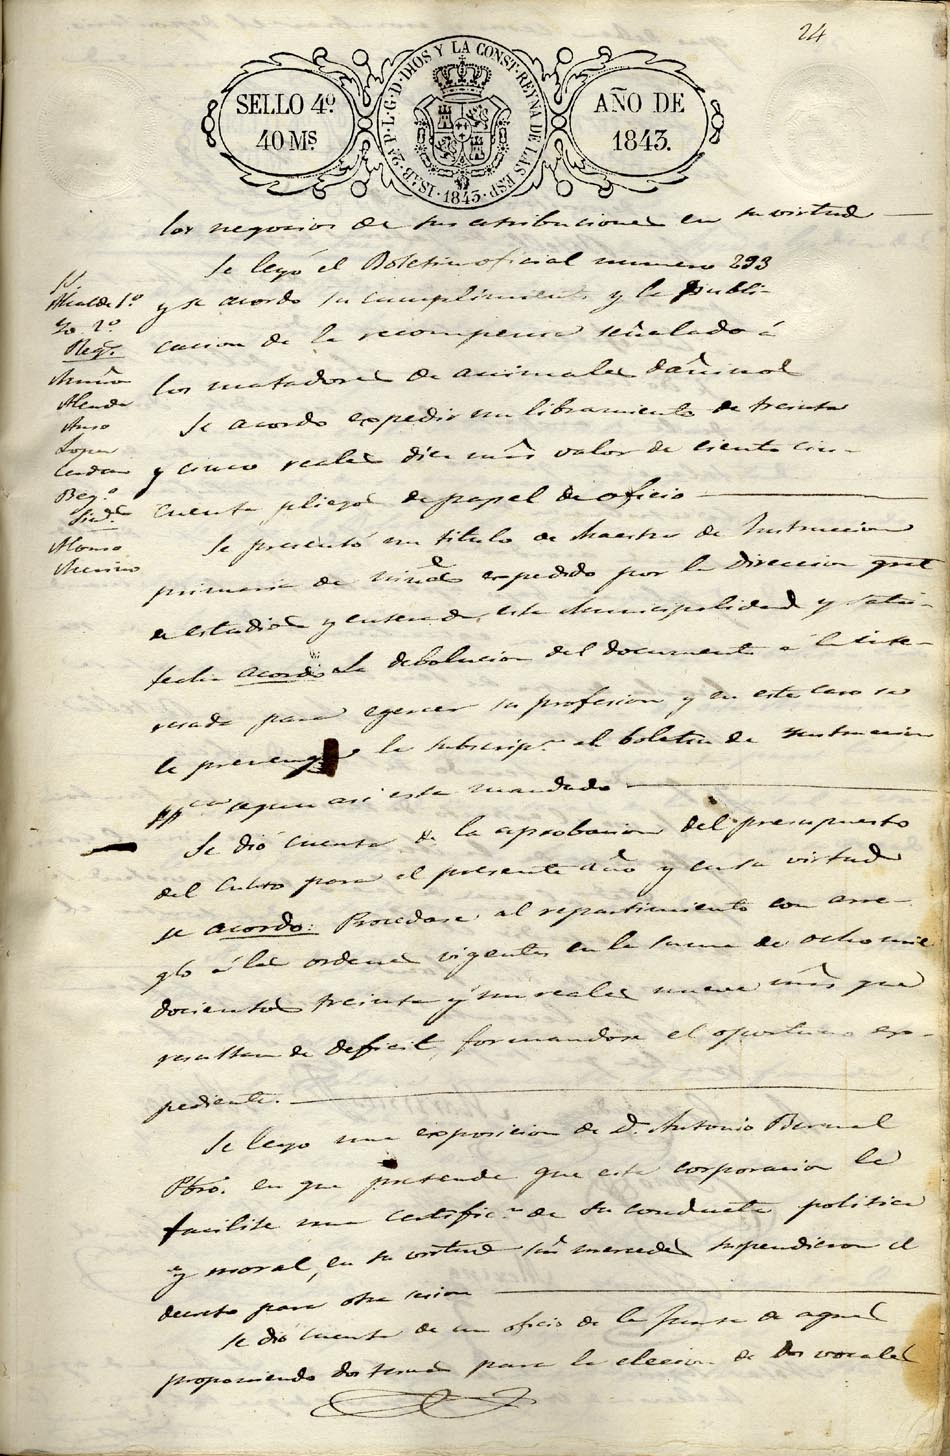 24
SELLO 4º
40 Mˢ
ISAB·2ª P·L·G·D·DIOS Y LA CONST·REYNA DE LAS ESP· 1843·
AÑO DE
1843.
los negocios de sus atribuciones en su virtud
Se leyó el Boletin oficial numero 293
y se acordo su cumplimiento y la publi-
cacion de la recompensa señalado á
los matadores de animales dañinos
Se acordo expedir un libramiento de treinta
y cinco reales diez mrs valor de ciento cin-
cuenta pliegos de papel de oficio
Se presentó un titulo de Maestra de Instruccion
primaria de niñas expedido por la Direccion gral
de estudios y enterada esta Municipalidad y satis-
fecha acordó la debolucion del documento á la inte-
resada para egercer su profesion y en este caso se
le prevenga la subscripn. al boletin de instruccion
ppca segun asi esta mandado
Se dió cuenta de la aprobacion del presupuesto
del Culto para el presente año y en su virtud
se acordo: Procedase al repartimiento con arre-
glo á las ordenes vigentes en la suma de ocho mil
docientos treinta y un reales nueve mrs que
resultan de deficit, formandose el oportuno ex-
pediente.
Se leyo una exposicion de D. Antonio Bernal
Pbro. en que pretende que esta corporacion le
facilite una certificn. de su conducta politica
y moral, en su virtud sus mercedes suspendieron el
decreto para otra sesion
Se dió cuenta de un oficio de la Junta de aguas
proponiendo dos ternas para la eleccion de dos vocales
SS.
Alcalde 1º
Yo 2º
Regs.
Muñoz
Alcaide
Lopez
Sinds.
Alonso
Merino